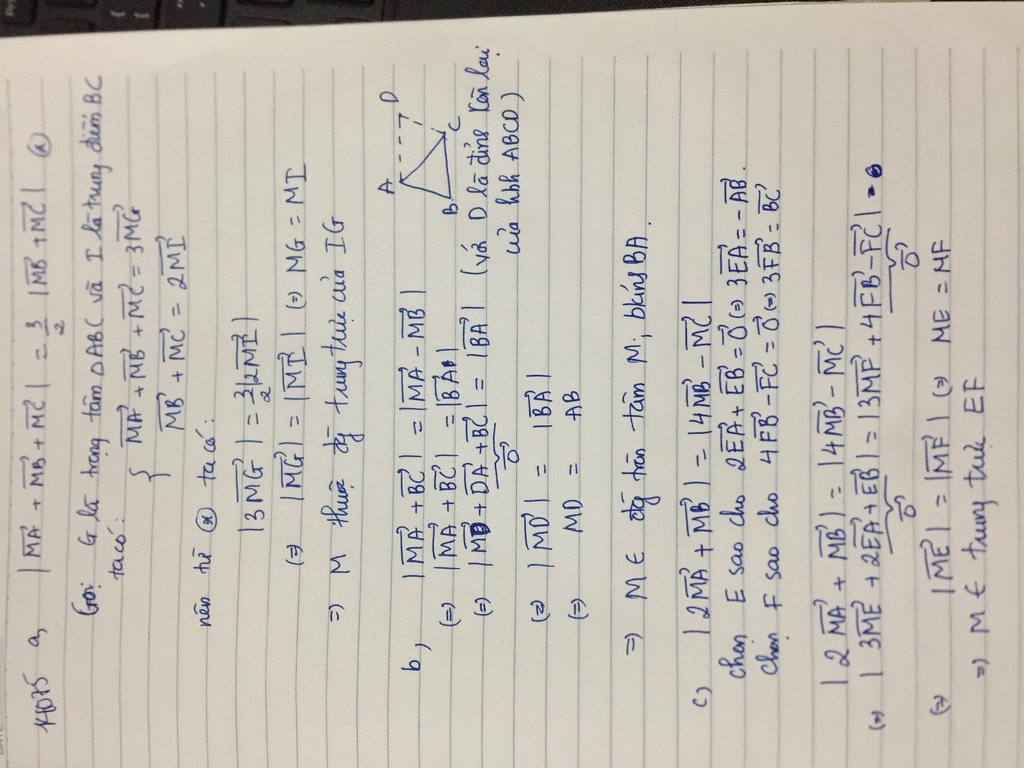 14075 a, |MA⃗ + MB⃗ + MC⃗| = 3/2 |MB⃗ + MC⃗| (*)
Gọi G là trọng tâm DABC và I là trung điểm BC
ta có:
{ MA⃗ + MB⃗ + MC⃗ = 3MG⃗
MB⃗ + MC⃗ = 2MI⃗
nên từ (*) ta có:
|3MG⃗| = 3/2 |2MI⃗|
(=) |MG⃗| = |MI⃗| (=) MG = MI
=) M thuộc đg trung trực của IG
A D
B C
b, |MA⃗ + BC⃗| = |MA⃗ - MB⃗|
(=) |MA⃗ + BC⃗| = |BA⃗|
(=) |MD⃗ + DA⃗ + BC⃗| = |BA⃗| (với D là đỉnh còn lại
0⃗ của hbh ABCD)
(=) |MD⃗| = |BA⃗|
(=) MD = AB
=) M ∈ đg tròn tâm M, bkính BA.
c) |2MA⃗ + MB⃗| = |4MB⃗ - MC⃗|
Chọn E sao cho 2EA⃗ + EB⃗ = 0⃗ (=) 3EA⃗ = -AB⃗.
Chọn F sao cho 4FB⃗ - FC⃗ = 0⃗ (=) 3FB⃗ = BC⃗
|2MA⃗ + MB⃗| = |4MB⃗ - MC⃗|
(=) |3ME⃗ + 2EA⃗ + EB⃗| = |3MF⃗ + 4FB⃗ - FC⃗|
0⃗ 0⃗
(=) |ME⃗| = |MF⃗| (=) ME = MF
=) M ∈ trung trực EF